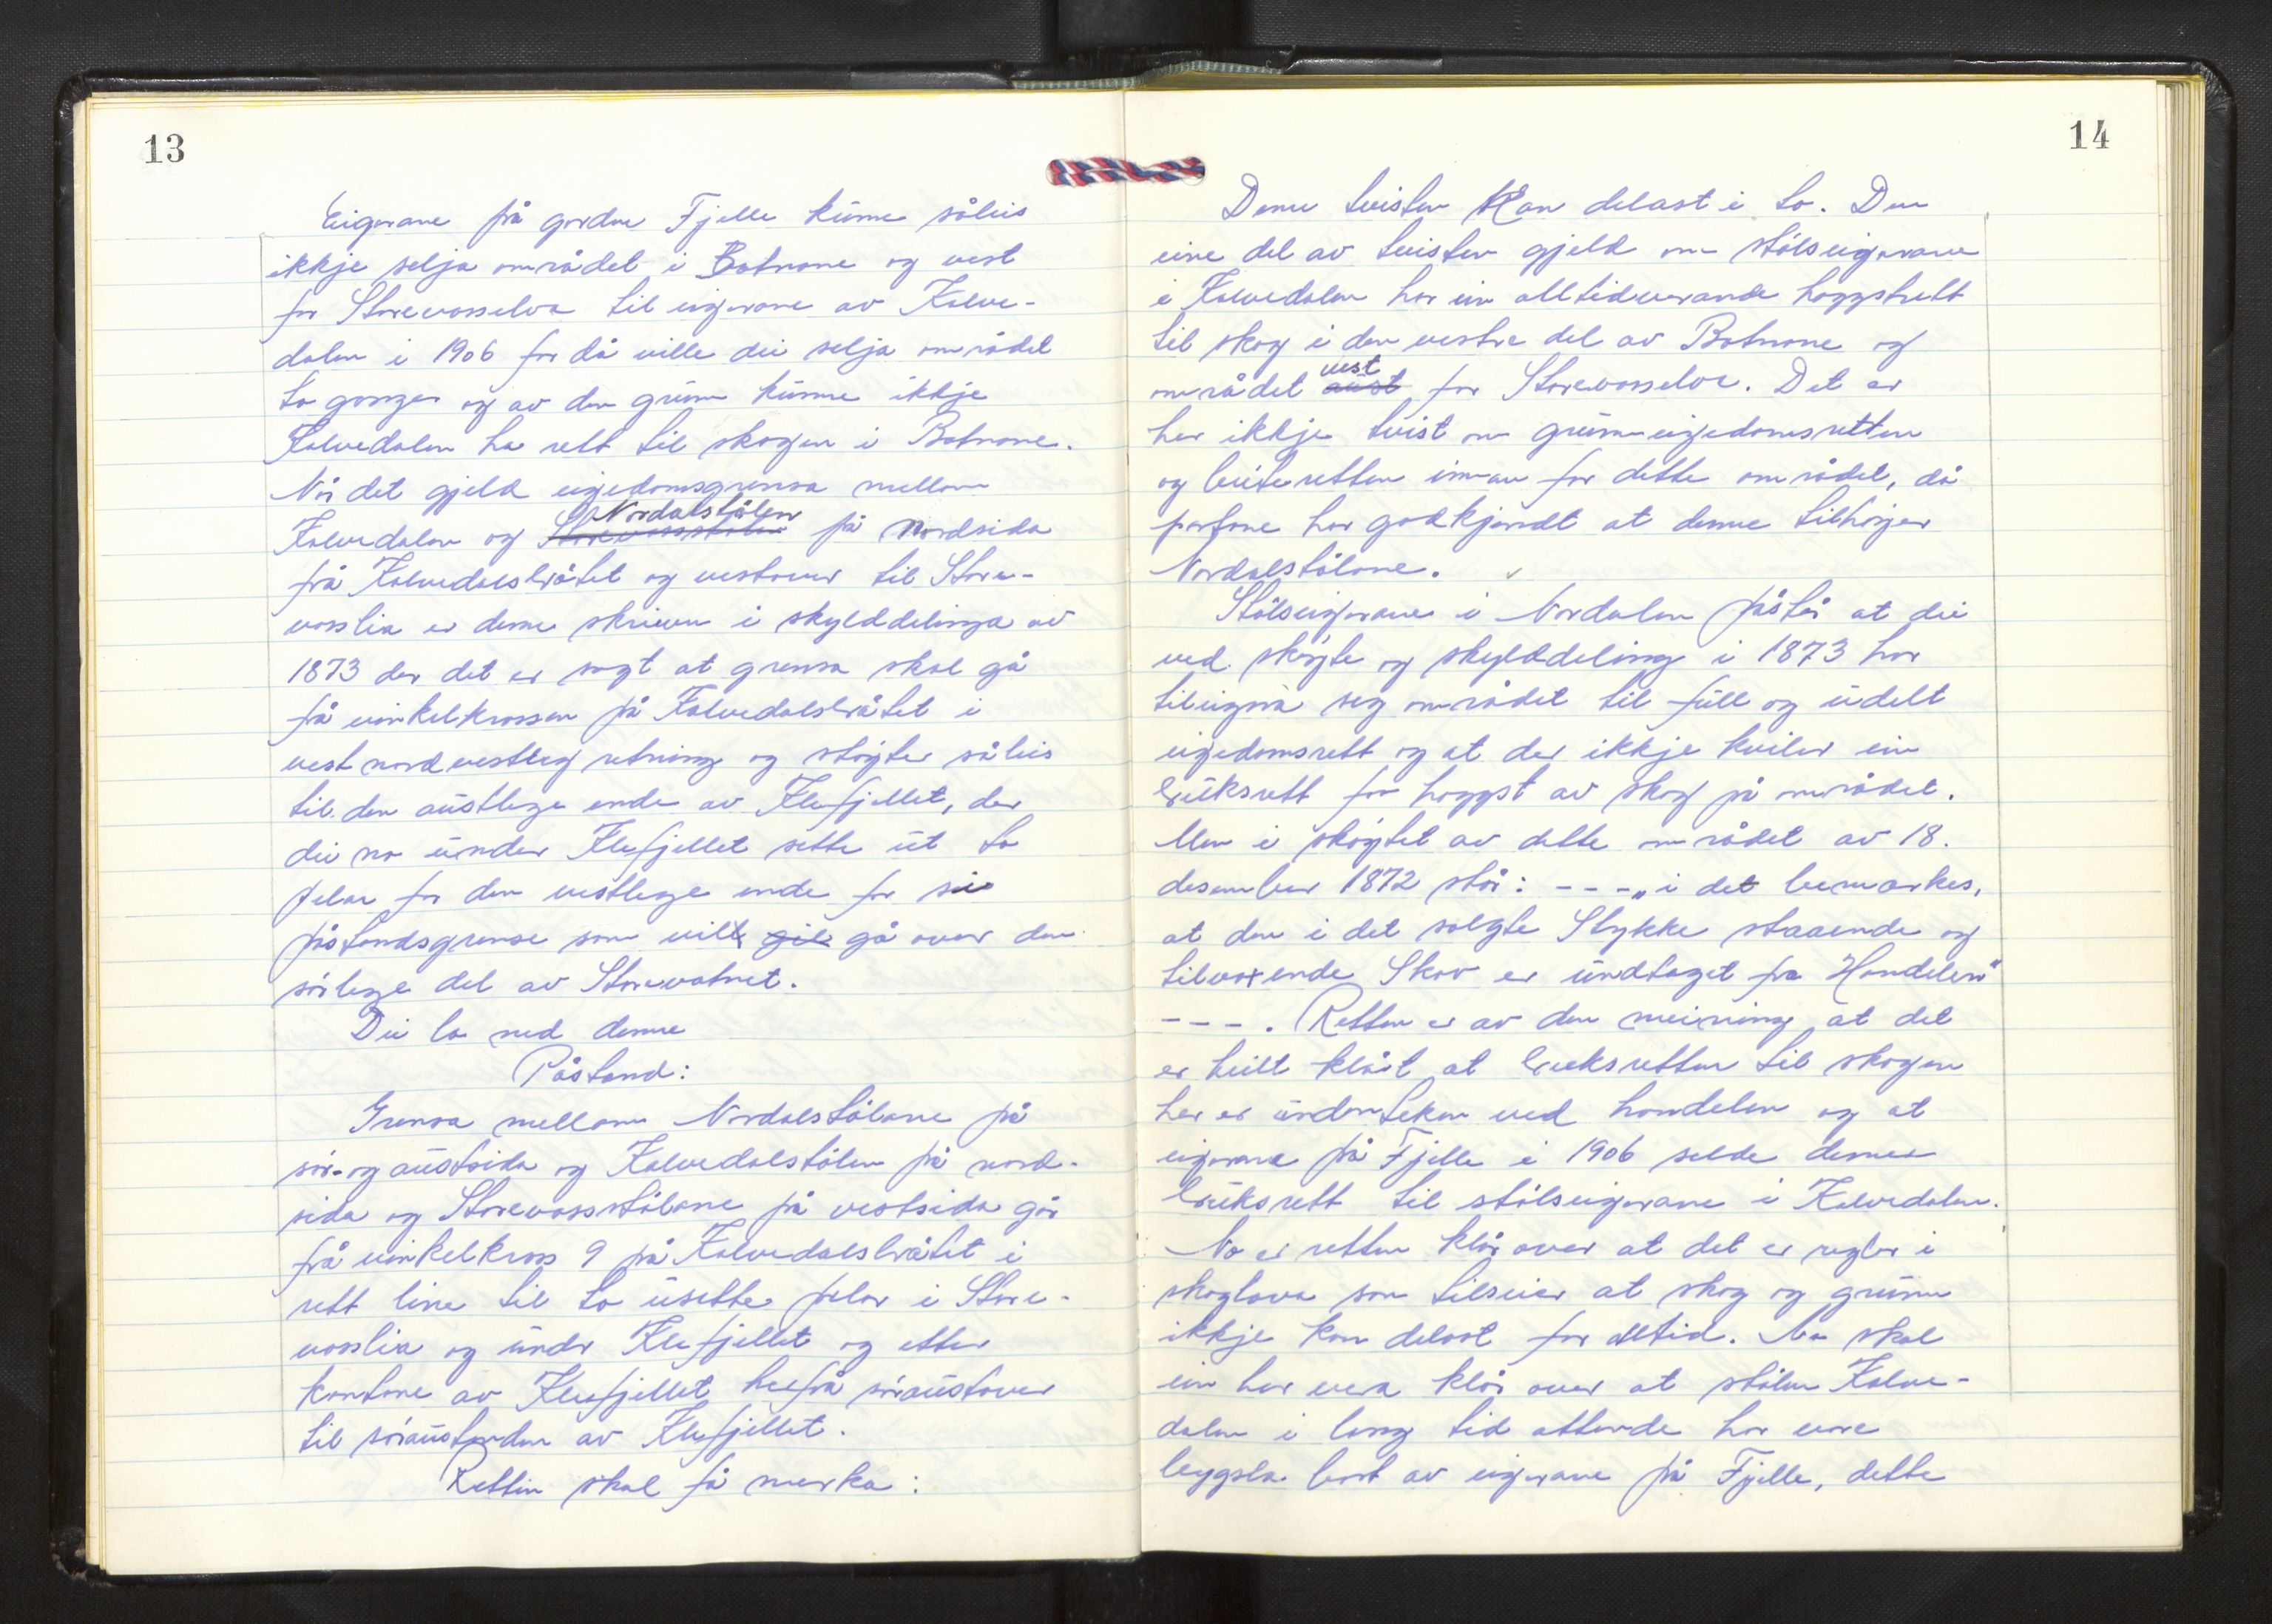 13
Eigarane på garden Fjelle kunne såleis
ikkje selja området i Botnane og vest
for Storevasselva til eigarane av Kalve-
dalen i 1906 for då ville dei selja området
to gonger og av den grunn kunne ikkje
Kalvedalen ha rett til skogen i Botnane.
Når det gjeld eigedomsgrensa mellom
Kalvedalen og Storevassstølane Nordalstølen på nordsida
frå Kalvedalsbråtet og vestover til Store-
vasslia er denne skriven i skylddelinga av
1873 der det er sagt at grensa skal gå
frå vinkelkrossen på Kalvedalsbråtet i
vest nordvestleg retning og støyter såleis
til den austlege ende av Klufjellet, der
dei no under Klufjellet sette ut to
pelar for den vestlege ende for si
påstandsgrense som vilk gå over den
sørlege del av Storevatnet.
Dei la ned denne
Påstand:
Grensa mellom Nordalstølane på
sør- og austsida og Kalvedalstølen på nord-
sida og Storevassstølane på vestsida går
frå vinkelkross 9 på Kalvedalsbråtet i
rett line til to usette pelar i Store-
vasslia og under Klufjellet og etter
kantane av Klufjellet herfrå søraustover
til søraustenden av Klufjellet.
Retten skal få merka:
14
Denne tvisten kan delast i to. Den
eine del av tvisten gjeld om stølseigarane
i Kalvedalen har ein alltidverande hoggstrett
til skog i den vestre del av Botnane og
området aust vest for Storevasselva. Det er
her ikkje tvist om grunneigedomsretten
og beiteretten innan for dette området, då
partane har godkjendt at denne tilhøyer
Nordalstølane.
Stølseigarane i Nordalen påstår at dei
ved skøyte og skylddeling i 1873 har
tileigna seg området til full og udelt
eigedomsrett og at der ikkje kviler ein
bruksrett for hoggst av skog på området.
Men i skøytet av dette området av 18.
desember 1872 står: - - - „i det bemærkes,
at den i det solgte Stykke staaende og
tilvoxende Skov er undtaget fra Handelen"
- - - . Retten er av den meining at det
er heilt klårt at bruksretten til skogen
her er undanteken ved handelen og at
eigarane på Fjelle i 1906 selde denne
bruksrett til stølseigarane i Kalvedalen.
No er retten klår over at det er reglar i
skoglova som tilseier at skog og grunn
ikkje kan delast for alltid. No skal
ein her vera klår over at stølen Kalve-
dalen i lang tid attende har vore
bygsla bort av eigarane på Fjelle, dette